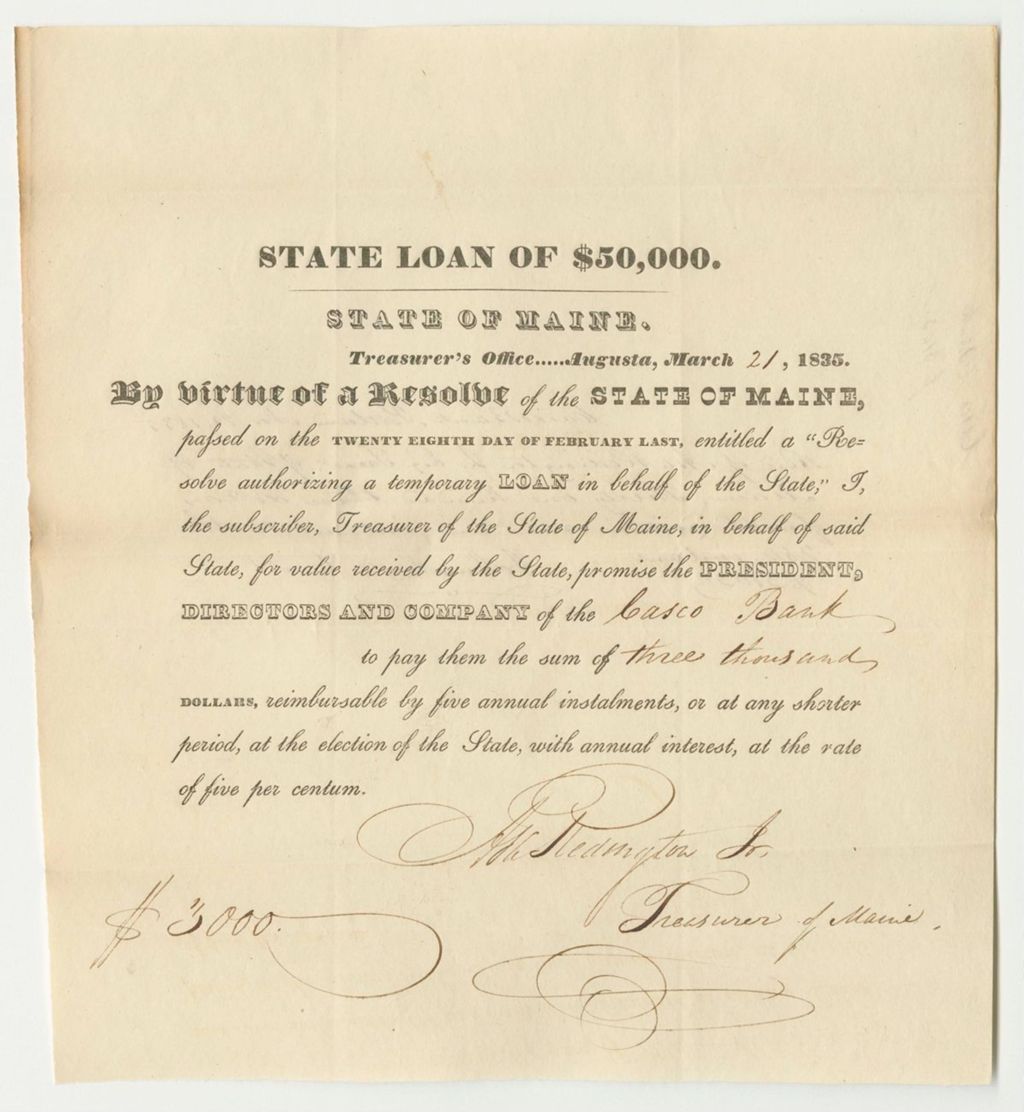 STATE LOAN OF $50,000.
STATE OF MAINE.
Treasurer's Office.....Augusta, March 21, 1835.
By virtue of a Resolve of the STATE OF MAINE,
passed on the TWENTY EIGHTH DAY OF FEBRUARY LAST, entitled a "Re=
solve authorizing a temporary LOAN in behalf of the State;" I,
the subscriber, Treasurer of the State of Maine, in behalf of said
State, for value received by the State, promise the PRESIDENT,
DIRECTORS AND COMPANY of the Casco Bank
to pay them the sum of three thousand
DOLLARS, reimbursable by five annual instalments, or at any shorter
period, at the election of the State, with annual interest, at the rate
of five per centum.
Asa Redington Jr.
$ 3000.
Treasurer of Maine.